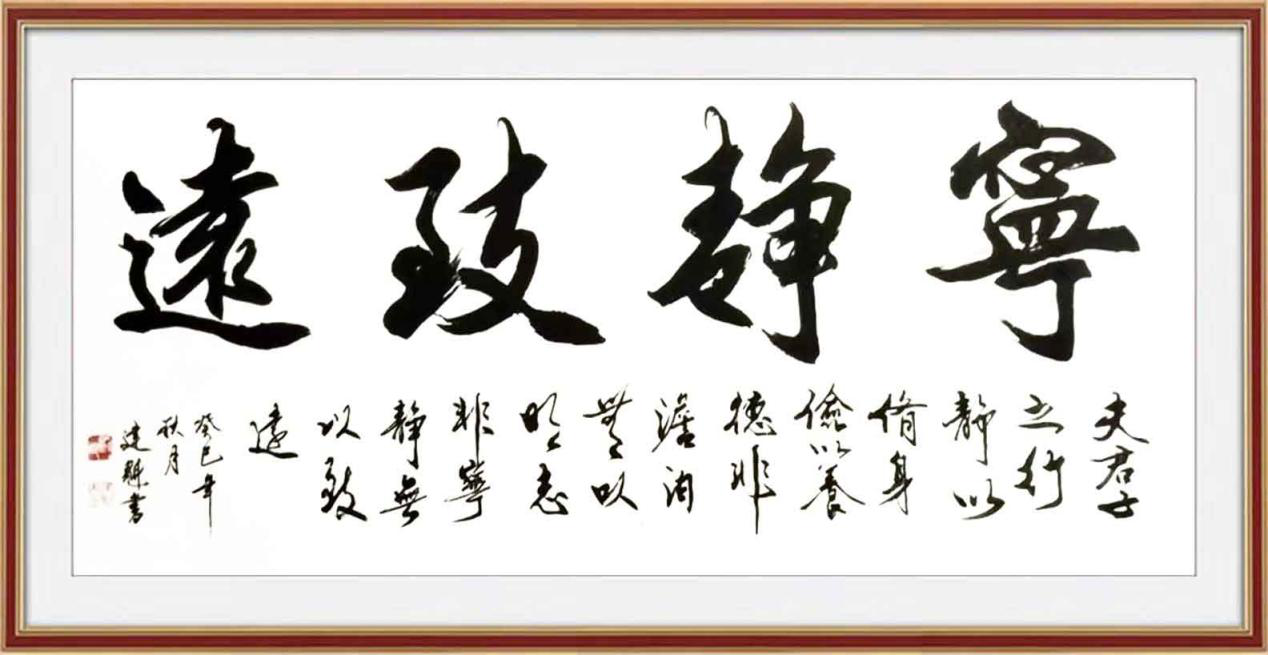 寧靜致遠
夫君子
之行
靜以
脩身
儉以養
德非
澹泊
無以
明志
非寧
靜無
以致
遠
癸巳年
秋月
建書